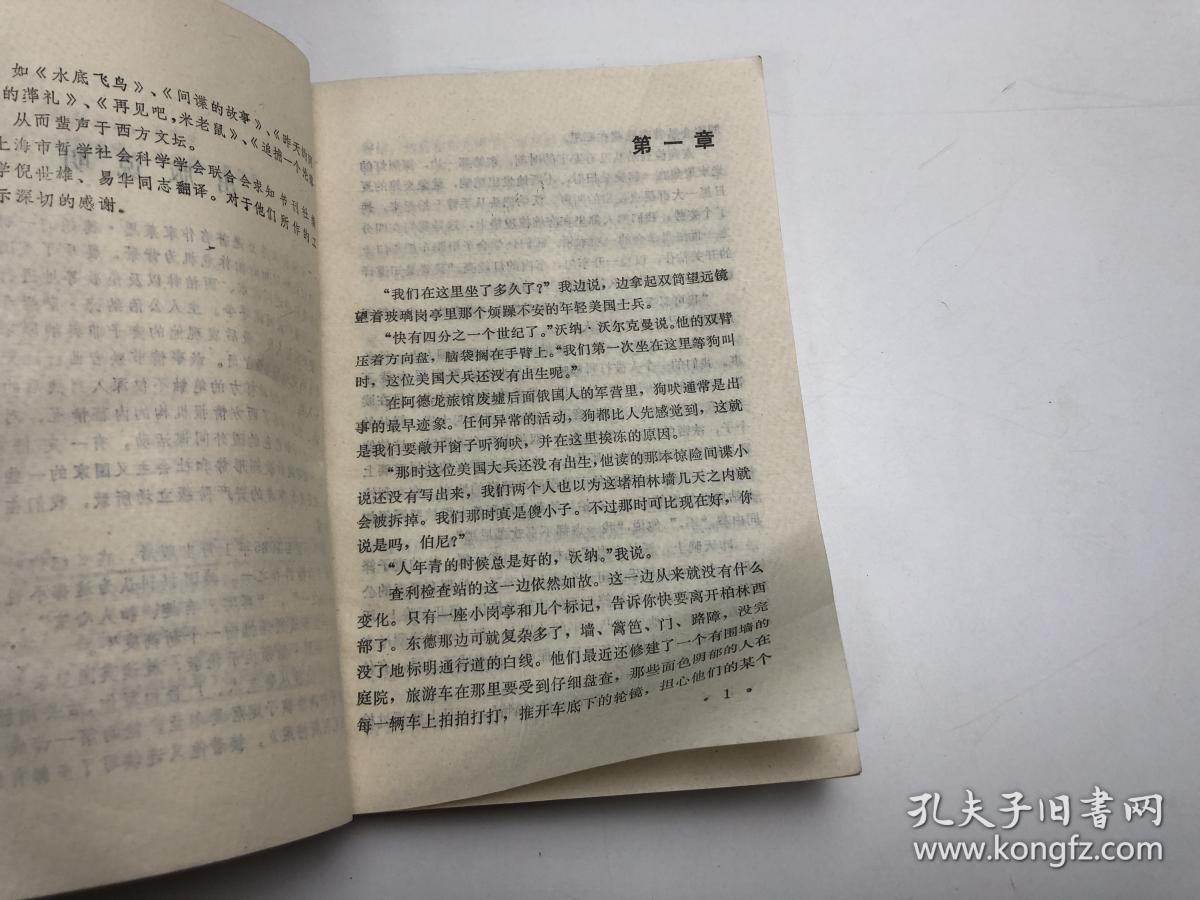 如《水底飞鸟》、《间谍的故事》、《昨天的间
的葬礼》、《再见吧，米老鼠》、《追捕一个
从而蜚声于西方文坛。
上海市哲学社会科学学会联合会求知书刊社
学倪世雄、易华同志翻译。对于他们所作的工
示深切的感谢。
第一章
“我们在这里坐了多久了？”我边说，边拿起双筒望远镜
望着玻璃岗亭里那个烦躁不安的年轻美国士兵。
“快有四分之一个世纪了。”沃纳·沃尔克曼说。他的双臂
压着方向盘，脑袋搁在手臂上。“我们第一次坐在这里等狗叫
时，这位美国大兵还没有出生呢。”
在阿德龙旅馆废墟后面俄国人的军营里，狗吠通常是出
事的最早迹象。任何异常的活动，狗都比人先感觉到，这就
是我们要敞开窗子听狗吠，并在这里挨冻的原因。
“那时这位美国大兵还没有出生，他读的那本惊险间谍小
说还没有写出来，我们两个人也以为这堵柏林墙几天之内就
会被拆掉。我们那时真是傻小子。不过那时可比现在好，你
说是吗，伯尼？”
“人年青的时候总是好的，沃纳。”我说。
查利检查站的这一边依然如故。这一边从来就没有什么
变化。只有一座小岗亭和几个标记，告诉你快要离开柏林西
部了。东德那边可就复杂多了，墙、篱笆、门、路障，没完
没了地标明通行道的白线。他们最近还修建了一个有围墙的
庭院，旅游车在那里要受到仔细盘查，那些面色阴郁的人在
每一辆车上拍拍打打，推开车底下的轮镜，担心他们的某个
· 1 ·
孔夫子旧书网
www.kongfz.com